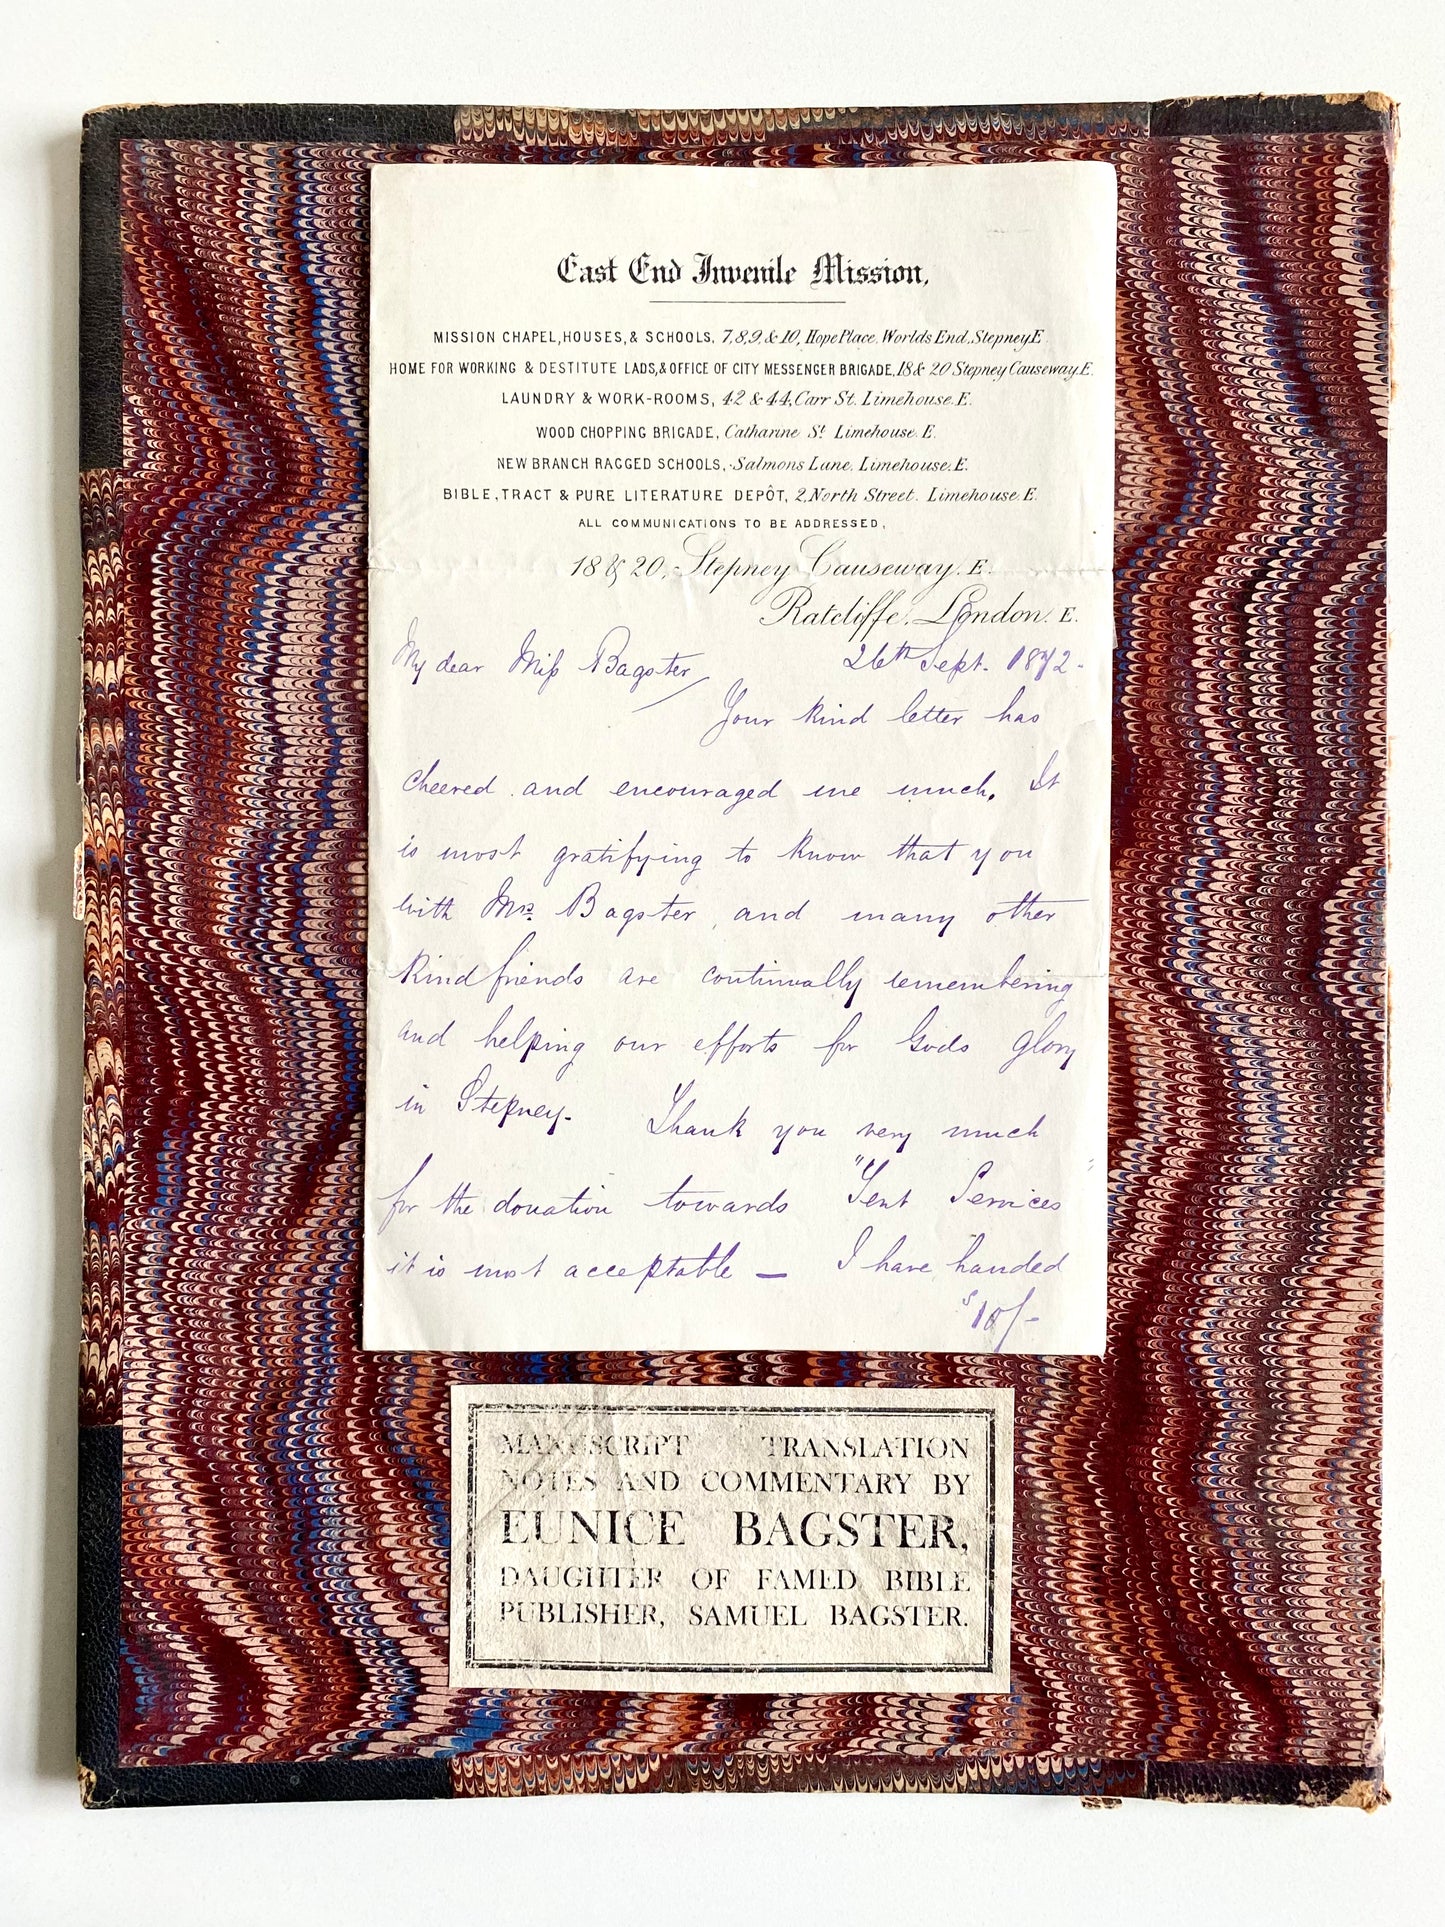 East End Juvenile Mission,
MISSION CHAPEL, HOUSES, & SCHOOLS, 7, 8, 9, & 10, Hope Place, Worlds End, Stepney E.
HOME FOR WORKING & DESTITUTE LADS, & OFFICE OF CITY MESSENGER BRIGADE, 18 & 20 Stepney Causeway, E.
LAUNDRY & WORK-ROOMS, 42 & 44, Carr St. Limehouse. E.
WOOD CHOPPING BRIGADE, Catharine St. Limehouse. E.
NEW BRANCH RAGGED SCHOOLS, Salmons Lane, Limehouse. E.
BIBLE, TRACT & PURE LITERATURE DEPÔT, 2, North Street. Limehouse. E.
ALL COMMUNICATIONS TO BE ADDRESSED,
18 & 20, Stepney Causeway. E.
Ratcliffe, London. E.
My dear Miss Bagster 26th Sept. 1872.
Your kind letter has
cheered and encouraged me much. It
is most gratifying to know that you
with Mrs. Bagster, and many other
kind friends are continually remembering
and helping our efforts for Gods glory
in Stepney. Thank you very much
for the donation towards "Tent Services"
it is most acceptable — I have handed
s 10/-
MANUSCRIPT TRANSLATION
NOTES AND COMMENTARY BY
EUNICE BAGSTER,
DAUGHTER OF FAMED BIBLE
PUBLISHER, SAMUEL BAGSTER.